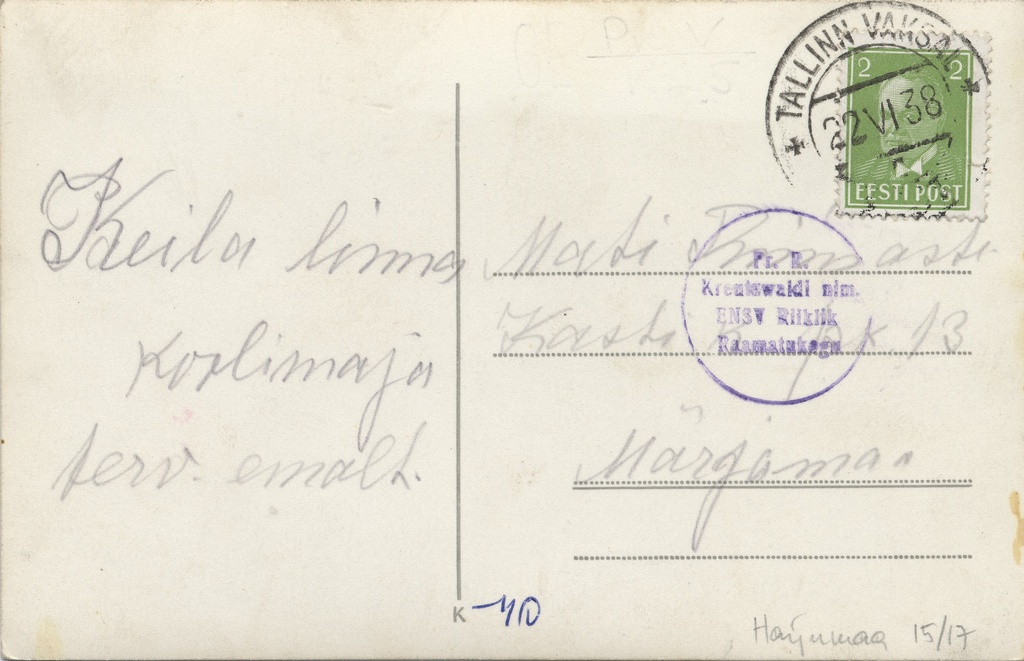 Keila linna
koolimaja
terv. emalt.
TALLINN VAKSAL
22 VI 38
2 2
EESTI POST
Mati
Kasti pk. 13
Märjamaa
Fr. R.
Kreutswaldi nim.
ENSV Riiklik
Raamatukogu
K
-40
Harjumaa 15/17